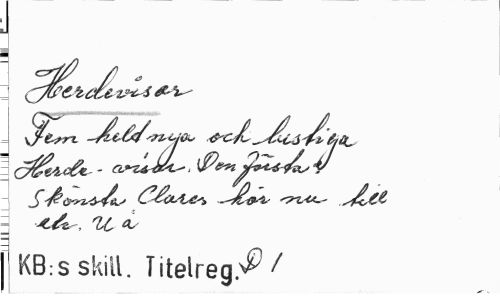 Herdevisor
Fem helt nya och lustiga
Herde-visor. Den första:
Skönsta Clores hör nu till
etc. U å
KB:s skill. Titelreg. D 1